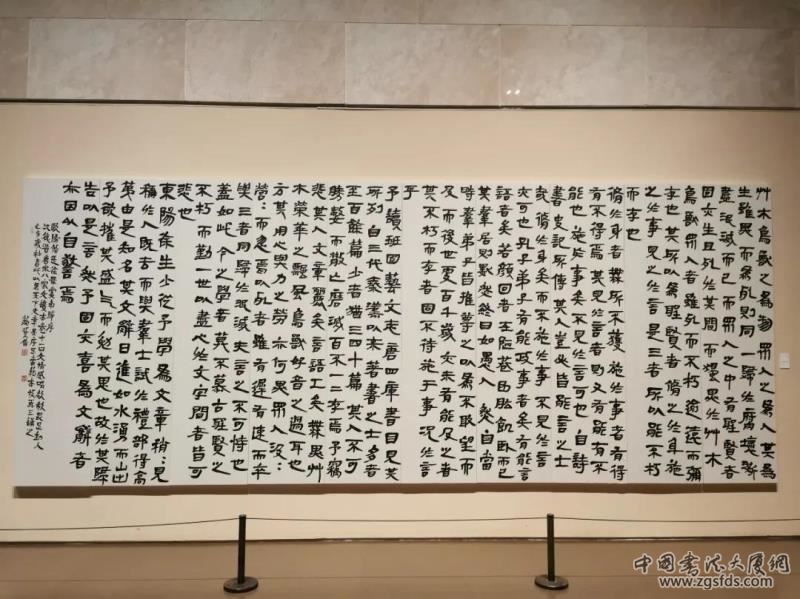 艸木鳥獸之為物眾人之為人其為
生雖異而為死則同一歸於腐壞澌
盡泯滅而已而眾人之中有聖賢者
固亦生且死於其間而獨異於艸木
鳥獸眾人者雖死而不朽逾遠而彌
存也其所以為聖賢者脩之於身施
之於事見之於言是三者所以能不朽
而存也
脩於身者無所不獲施於事者有得
有不得焉其見於言者則又有能有不
能也施於事矣不見於言可也自詩
書史記所傳其人豈必皆能言之士
哉脩於身矣而不施於事不見於言
亦可也孔子弟子有能政事者矣有能言
語者矣若顏回者在陋巷曲肱飢臥而已
其羣居則默然終日如愚人然自當
時羣弟子皆推尊之以為不敢望而
及而後世更百千歲亦未有能及之者
其不朽而存者固不待施于事況於言
乎
予讀班固藝文志唐四庫書目見其
所列自三代秦漢以來著書之士多者
至百餘篇少者猶三四十篇其人不可
勝數而散亡磨滅百不一二存焉予竊
悲其人文章麗矣言語工矣無異艸
木榮華之飄風鳥獸好音之過耳也
方其用心與力之勞亦何異眾人汲汲
營營而忽焉以死者雖有遲有速而卒
與三者同歸於泯滅夫言之不可恃也
蓋如此今之學者莫不慕古聖賢之
不朽而勤一世以盡心於文字間者皆可
悲也
東陽徐生少從予學為文章稍稍見
稱於人既去而與羣士試於禮部得高
第由是知名其文辭日進如水湧而山出
予欲摧其盛气而勉其思也故於其歸
告以是言然予固亦喜為文辭者
亦因以自警焉
中國書法大廈網
www.zgsfds.com